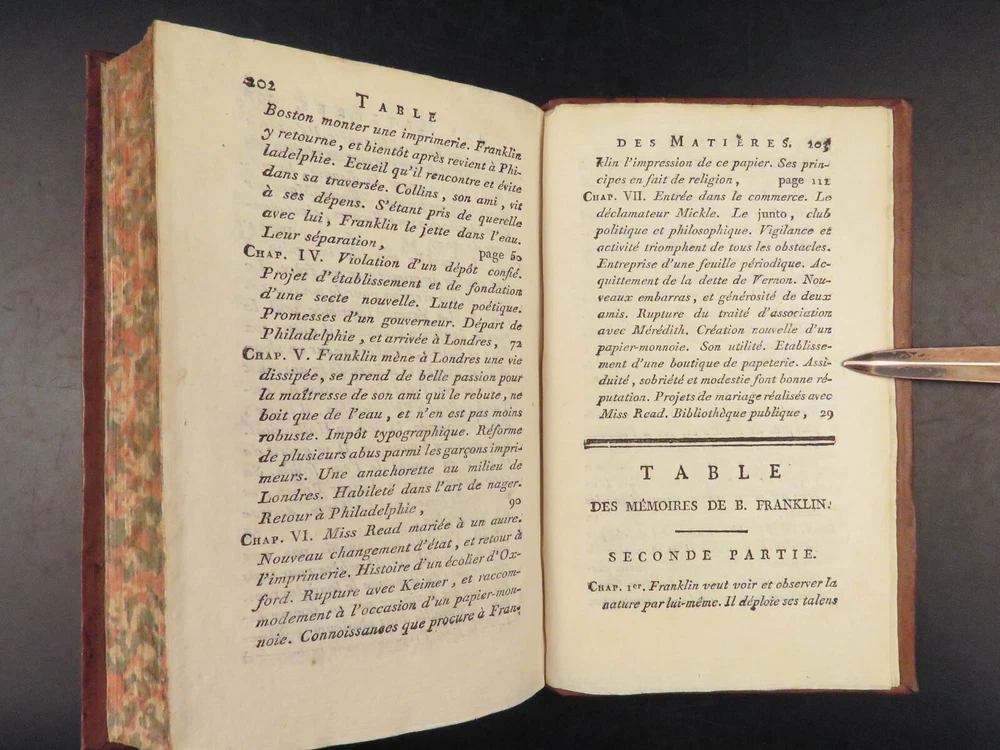 202
TABLE
Boston monter une imprimerie. Franklin
y retourne, et bientôt après revient à Phi-
ladelphie. Ecueil qu'il rencontre et évite
dans sa traversée. Collins, son ami, vit
à ses dépens. S'étant pris de querelle
avec lui, Franklin le jette dans l'eau.
Leur séparation, page 50
CHAP. IV. Violation d'un dépôt confié.
Projet d'établissement et de fondation
d'une secte nouvelle. Lutte poétique.
Promesses d'un gouverneur. Départ de
Philadelphie, et arrivée à Londres, 72
CHAP. V. Franklin mène à Londres une vie
dissipée, se prend de belle passion pour
la maîtresse de son ami qui le rebute, ne
boit que de l'eau, et n'en est pas moins
robuste. Impôt typographique. Réforme
de plusieurs abus parmi les garçons impri-
meurs. Une anachorette au milieu de
Londres. Habileté dans l'art de nager.
Retour à Philadelphie, 90
CHAP. VI. Miss Read mariée à un autre.
Nouveau changement d'état, et retour à
l'imprimerie. Histoire d'un écolier d'Ox-
ford. Rupture avec Keimer, et raccom-
modement à l'occasion d'un papier-mon-
noie. Connoissances que procure à Fran-
DES MATIÈRES.
klin l'impression de ce papier. Ses prin-
cipes en fait de religion, page 111
CHAP. VII. Entrée dans le commerce. Le
déclamateur Mickle. Le junto, club
politique et philosophique. Vigilance et
activité triomphent de tous les obstacles.
Entreprise d'une feuille périodique. Ac-
quittement de la dette de Vernon. Nou-
veaux embarras, et générosité de deux
amis. Rupture du traité d'association
avec Mérédith. Création nouvelle d'un
papier-monnoie. Son utilité. Etablisse-
ment d'une boutique de papeterie. Assi-
duité, sobriété et modestie font bonne ré-
putation. Projets de mariage réalisés avec
Miss Read. Bibliothèque publique, 29
TABLE
DES MÉMOIRES DE B. FRANKLIN.
SECONDE PARTIE.
CHAP. 1er. Franklin veut voir et observer la
nature par lui-même. Il déploie ses talens